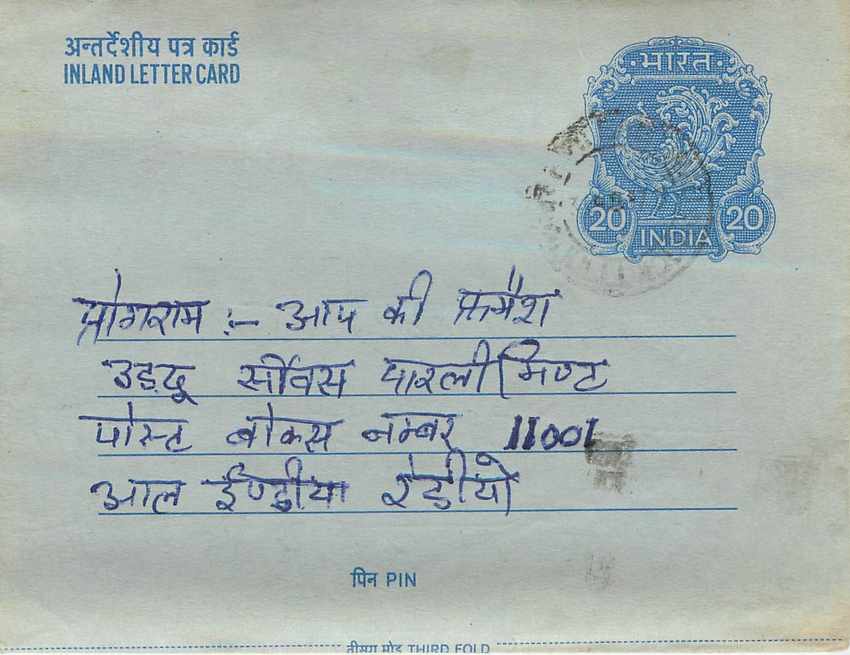 अन्तर्देशीय पत्र कार्ड
INLAND LETTER CARD
भारत
20 20
INDIA
प्रोगराम :- आप की फ्रमैश
उड़दू सर्विस पारलीमिण्ट
पोस्ट बोकस नम्बर 11001
आल ईण्डीया रेडीयो
पिन PIN
तीसरा मोड़ THIRD FOLD